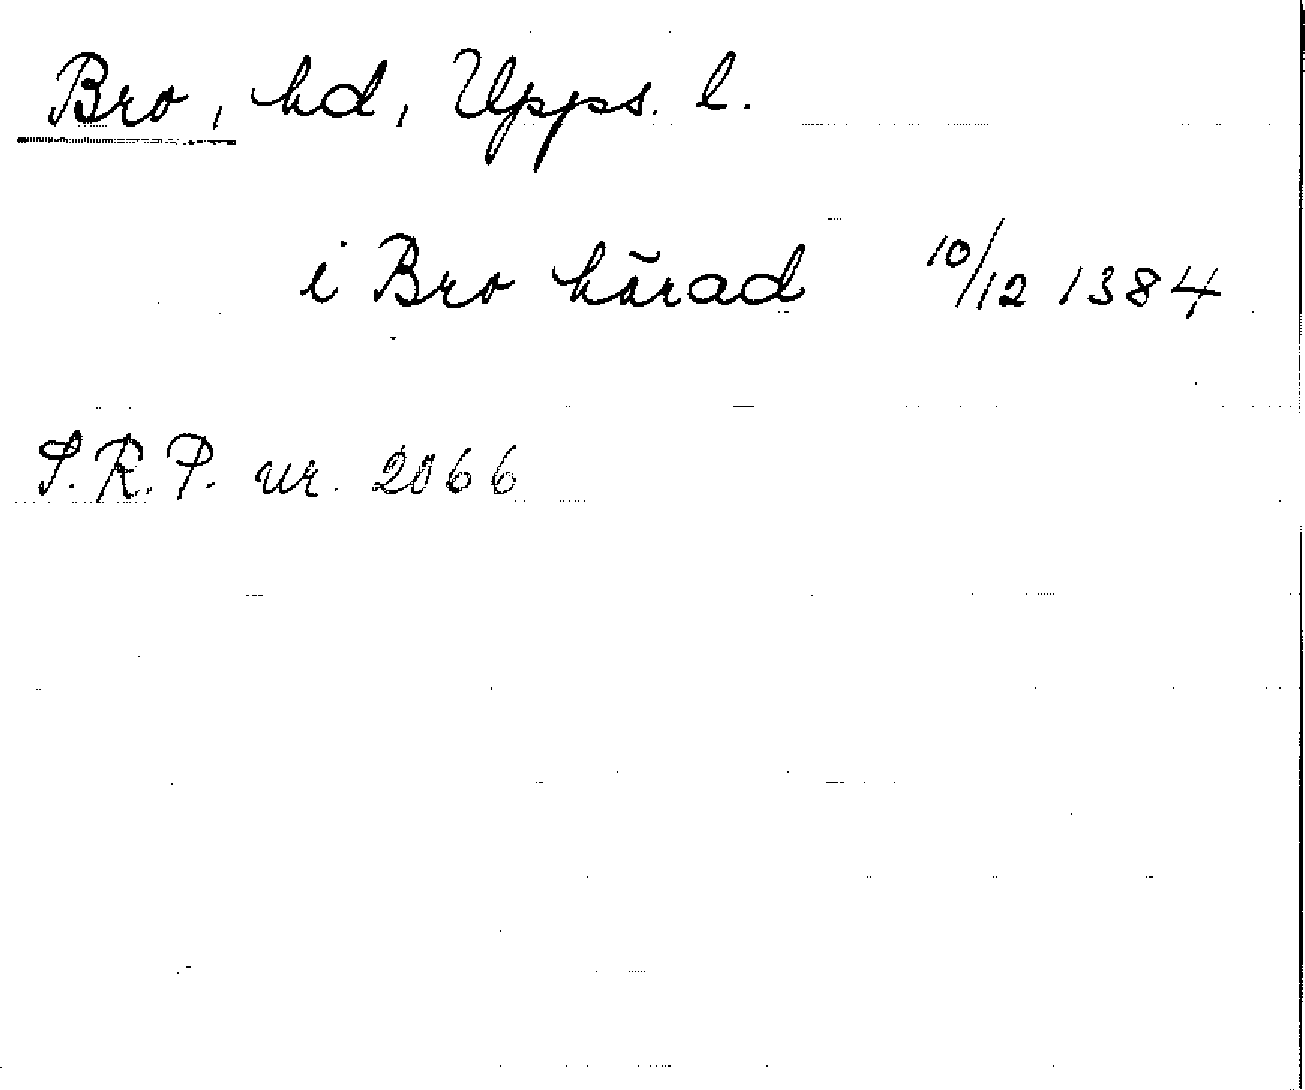 Bro, hd, Upps. l.
i Bro härad 10/12 1384
S.R.P. nr. 2066